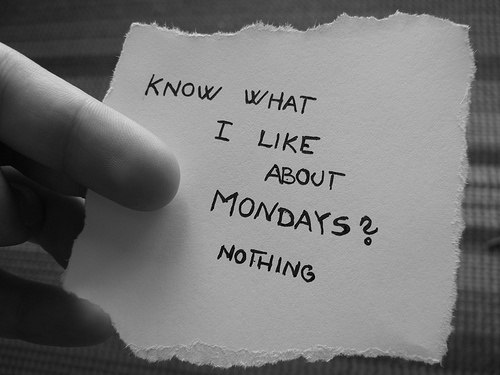 KNOW WHAT
I LIKE
ABOUT
MONDAYS?
NOTHING